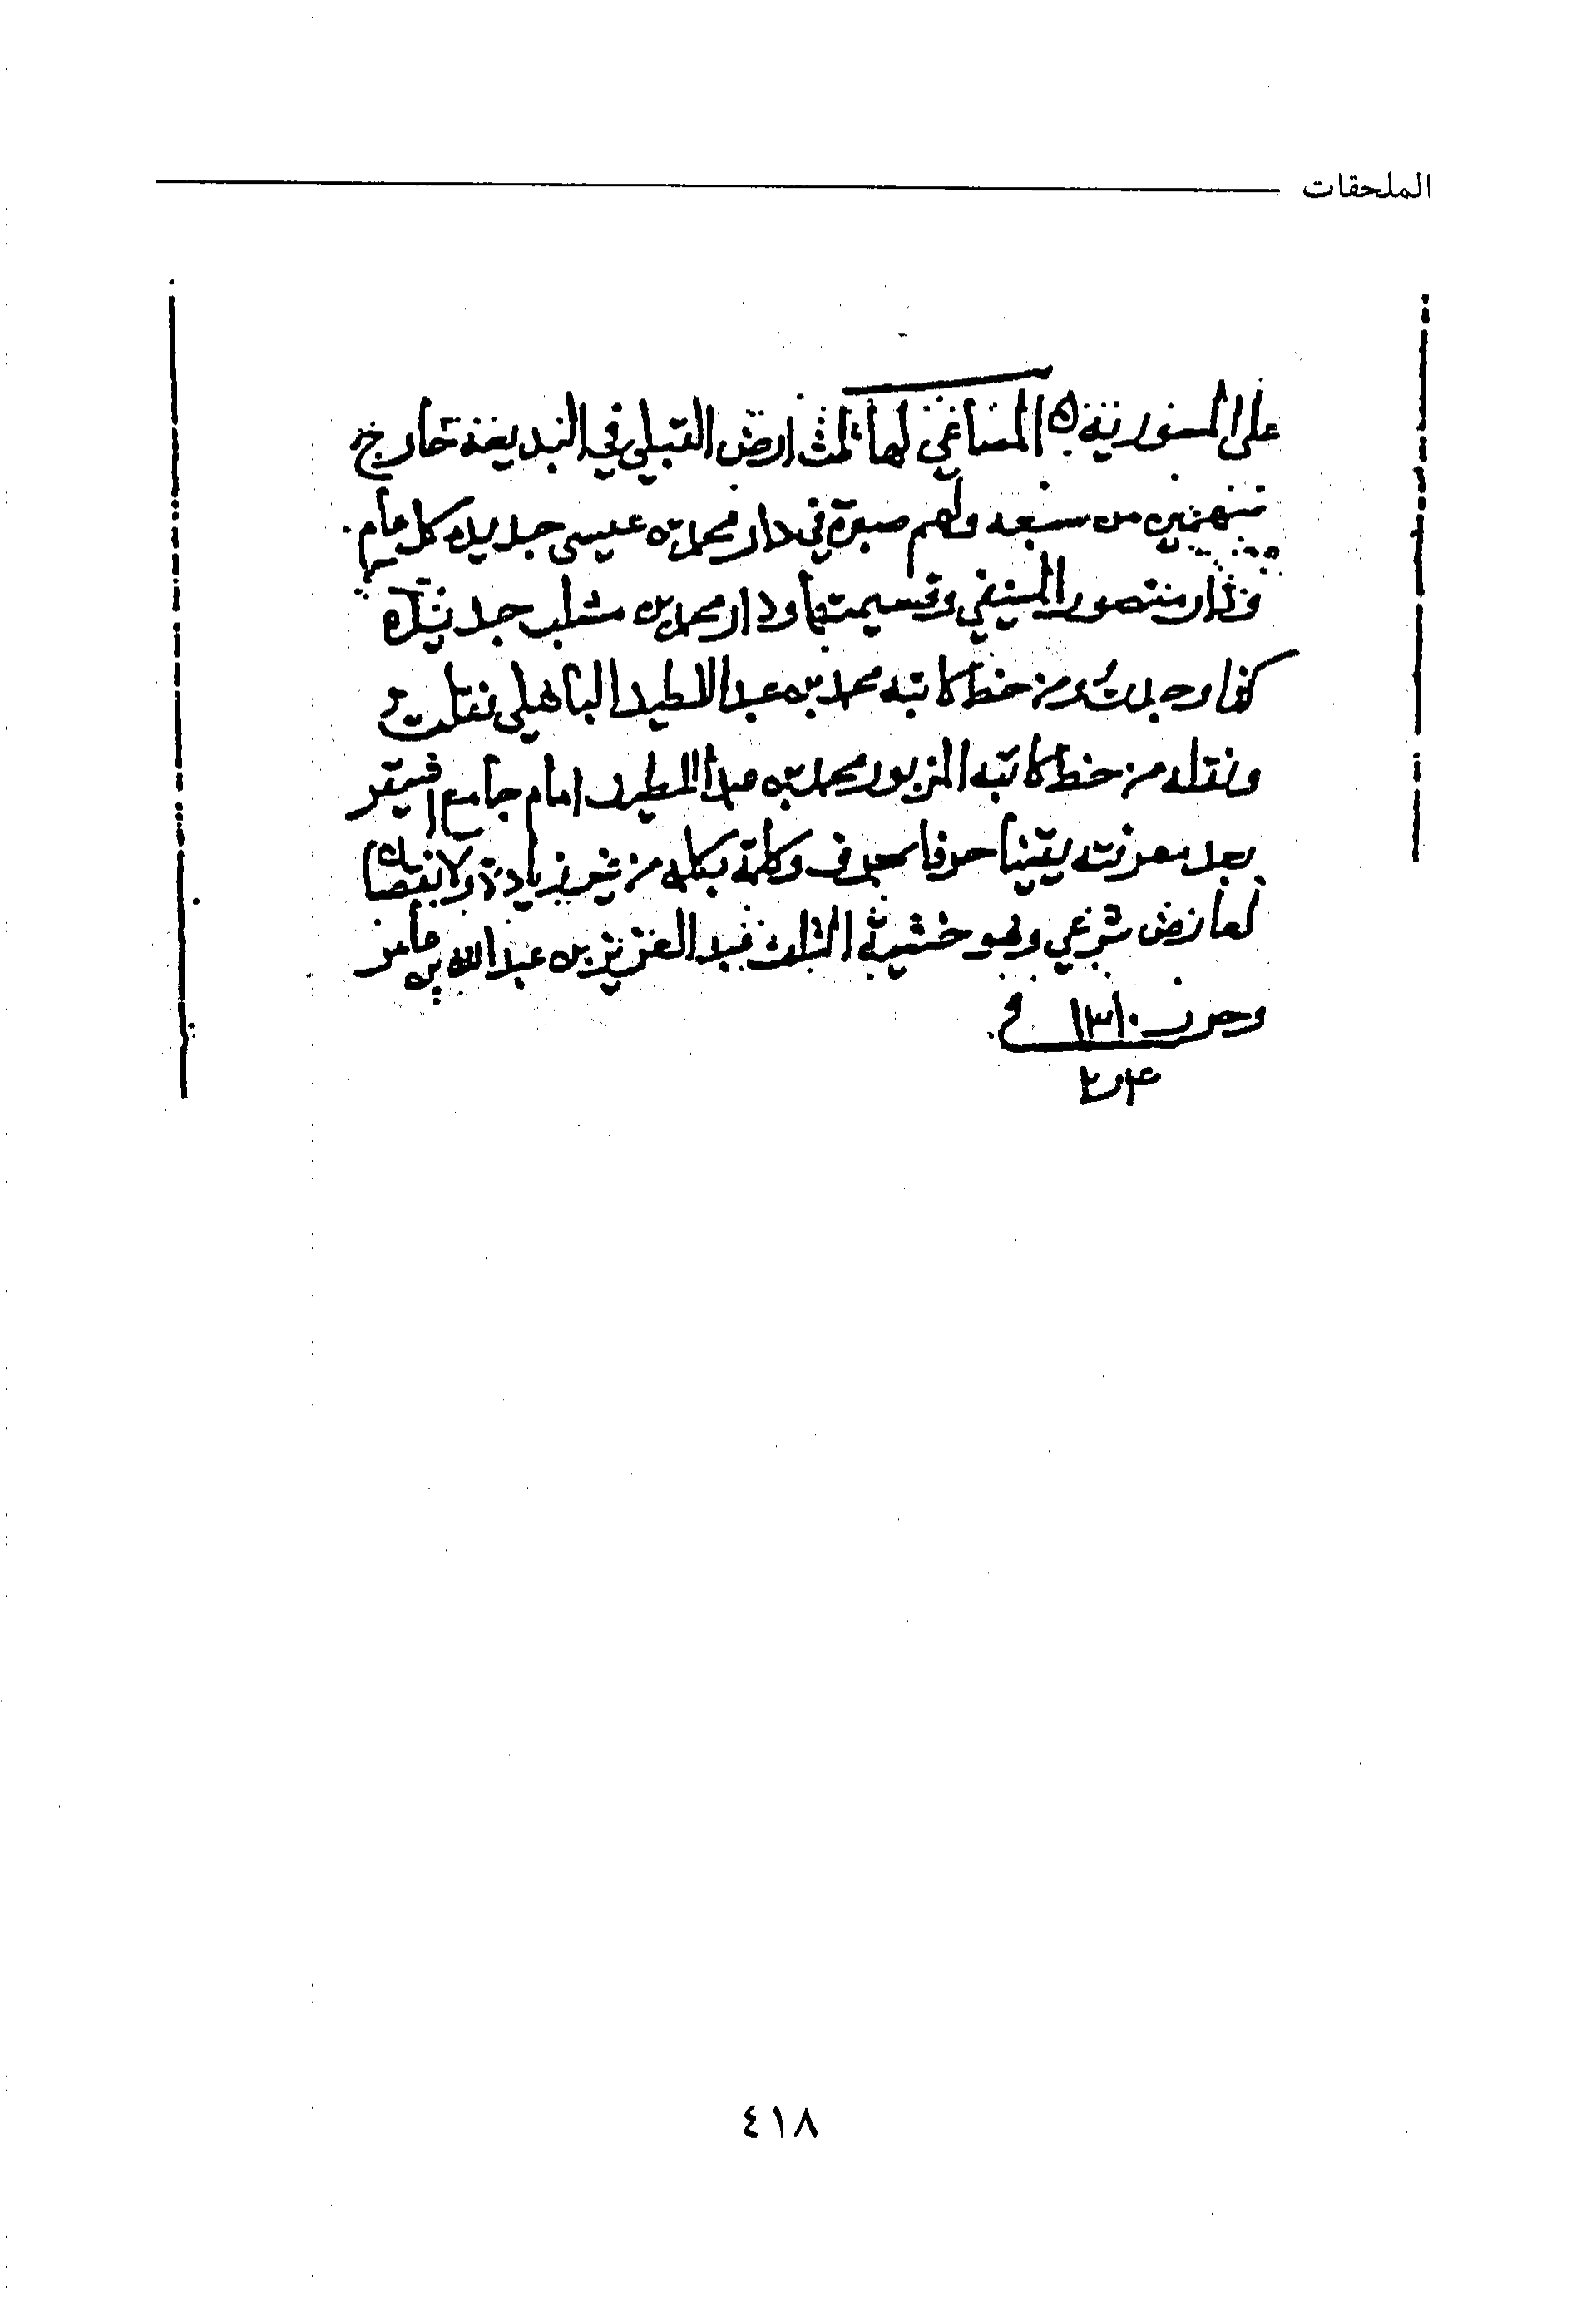 الملحقات
على المسورية المساعي لها ثلث ارض القبلي في البديعة خارج
سهمين من سبعه ولهم صبرة في دار محمد بن عيسى جديده كل عام
ودار منصور المنيفي وقسيمتها ودار محمد بن
من خط كاتبه محمد بن عبد اللطيف الباهلي نقلت
ونقله من خط كاتبه المزبور محمد بن عبد اللطيف امام جامع اشيقر
بعد معرفته يقينا حرفا بحرف وكلمة بكلمه من غير زيادة ولا نقصان
لعارض شرعي وهو خشية التلف عبد العزيز بن عبد الله بن عامر
وحرر ١٣١٠
٤١٨